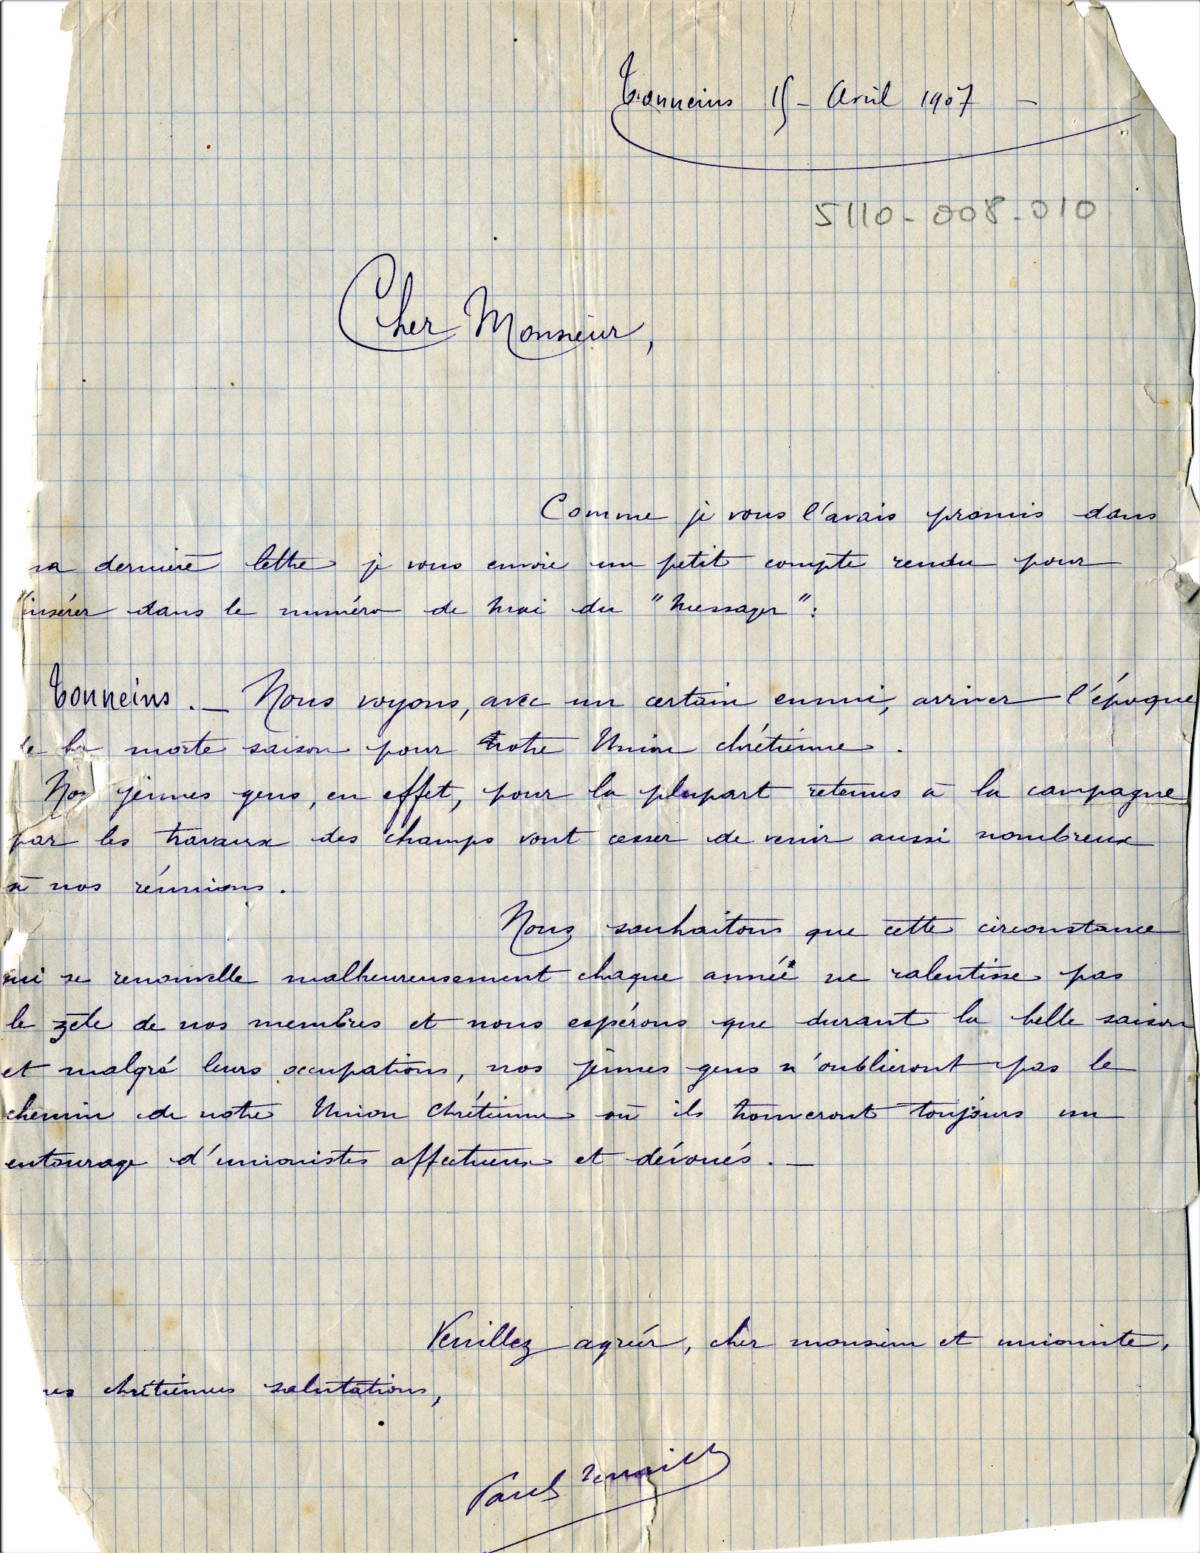 Tonneins 15 - Avril 1907 -
5110-008-010
Cher Monsieur,
Comme je vous l'avais promis dans
ma dernière lettre je vous envoie un petit compte rendu pour
insérer dans le numéro de mai du "Messager":
Tonneins. - Nous voyons, avec un certain ennui, arriver l'époque
de la morte saison pour notre Union chrétienne.
Nos jeunes gens, en effet, pour la plupart retenus à la campagne
par les travaux des champs vont cesser de venir aussi nombreux
à nos réunions.
Nous souhaitons que cette circonstance
qui se renouvelle malheureusement chaque année ne ralentisse pas
le zèle de nos membres et nous espérons que durant la belle saison
et malgré leurs occupations, nos jeunes gens n'oublieront pas le
chemin de notre Union Chrétienne où ils trouveront toujours un
entourage d'unionistes affectueux et dévoués. -
Veuillez agréer, cher monsieur et unioniste,
mes chrétiennes salutations,
Paul